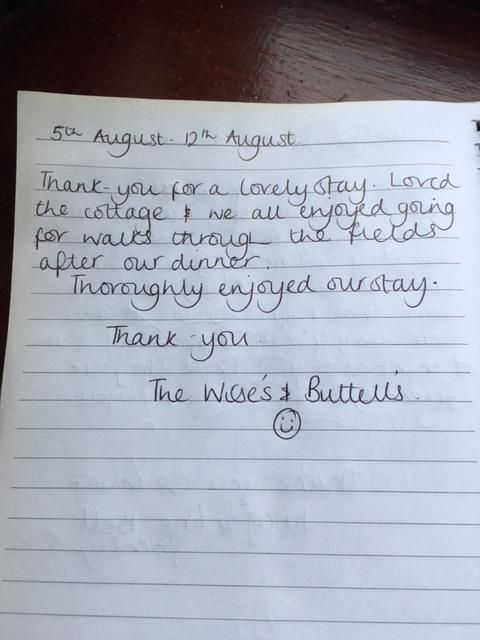 5th August - 12th August.
Thank-you for a lovely stay. Loved
the cottage & we all enjoyed going
for walks through the fields
after our dinner.
Thoroughly enjoyed our stay.
Thank-you.
The & Buttell's.